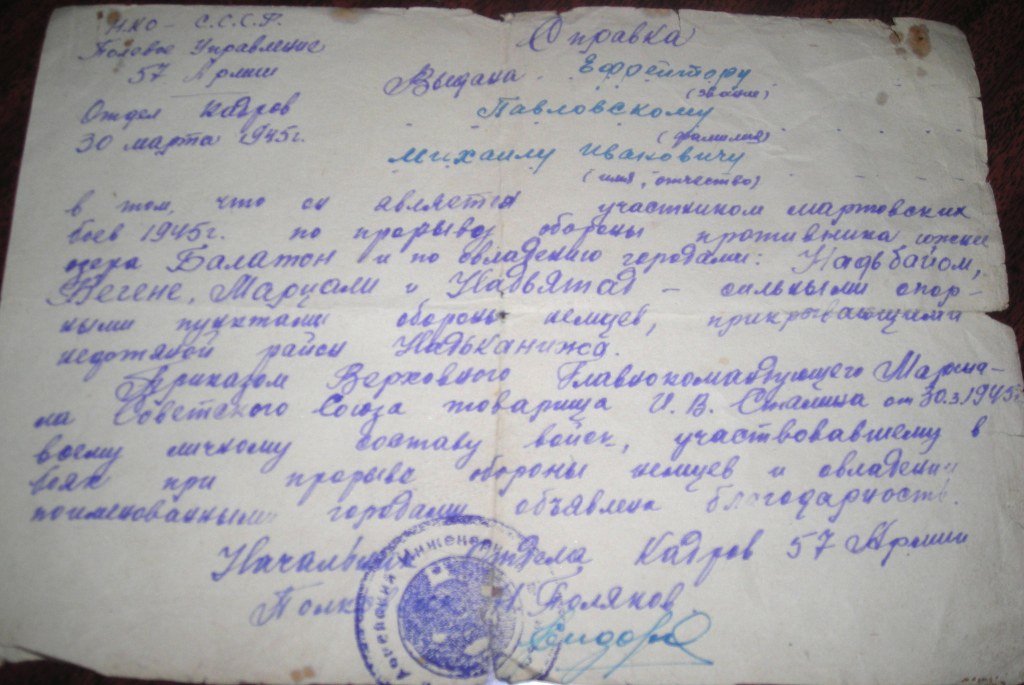 НКО - С.С.С.Р.
Полевое Управление
57 Армии
Отдел Кадров
30 марта 1945г.
Справка
Выдана Ефрейтору
(звание)
Павловскому
(фамилия)
Михаилу Ивановичу
(имя, отчество)
в том, что он является участником мартовских
боев 1945г. по прорыву обороны противника южнее
озера Балатон и по овладению городами: Надьбайом,
Бегене, Марцали и Надьятад - сильными опор-
ными пунктами обороны немцев, прикрывающими
недотяной район Надьканижа.
Приказом Верховного Главнокомандующего Марша-
ла Советского Союза товарища И. В. Сталина от 30.3.1945г
всему личному составу войск, участвовавшему в
боях при прорыве обороны немцев и овладении
поименованными городами объявлена благодарность.
Начальник Отдела Кадров 57 Армии
Полковник Поляков